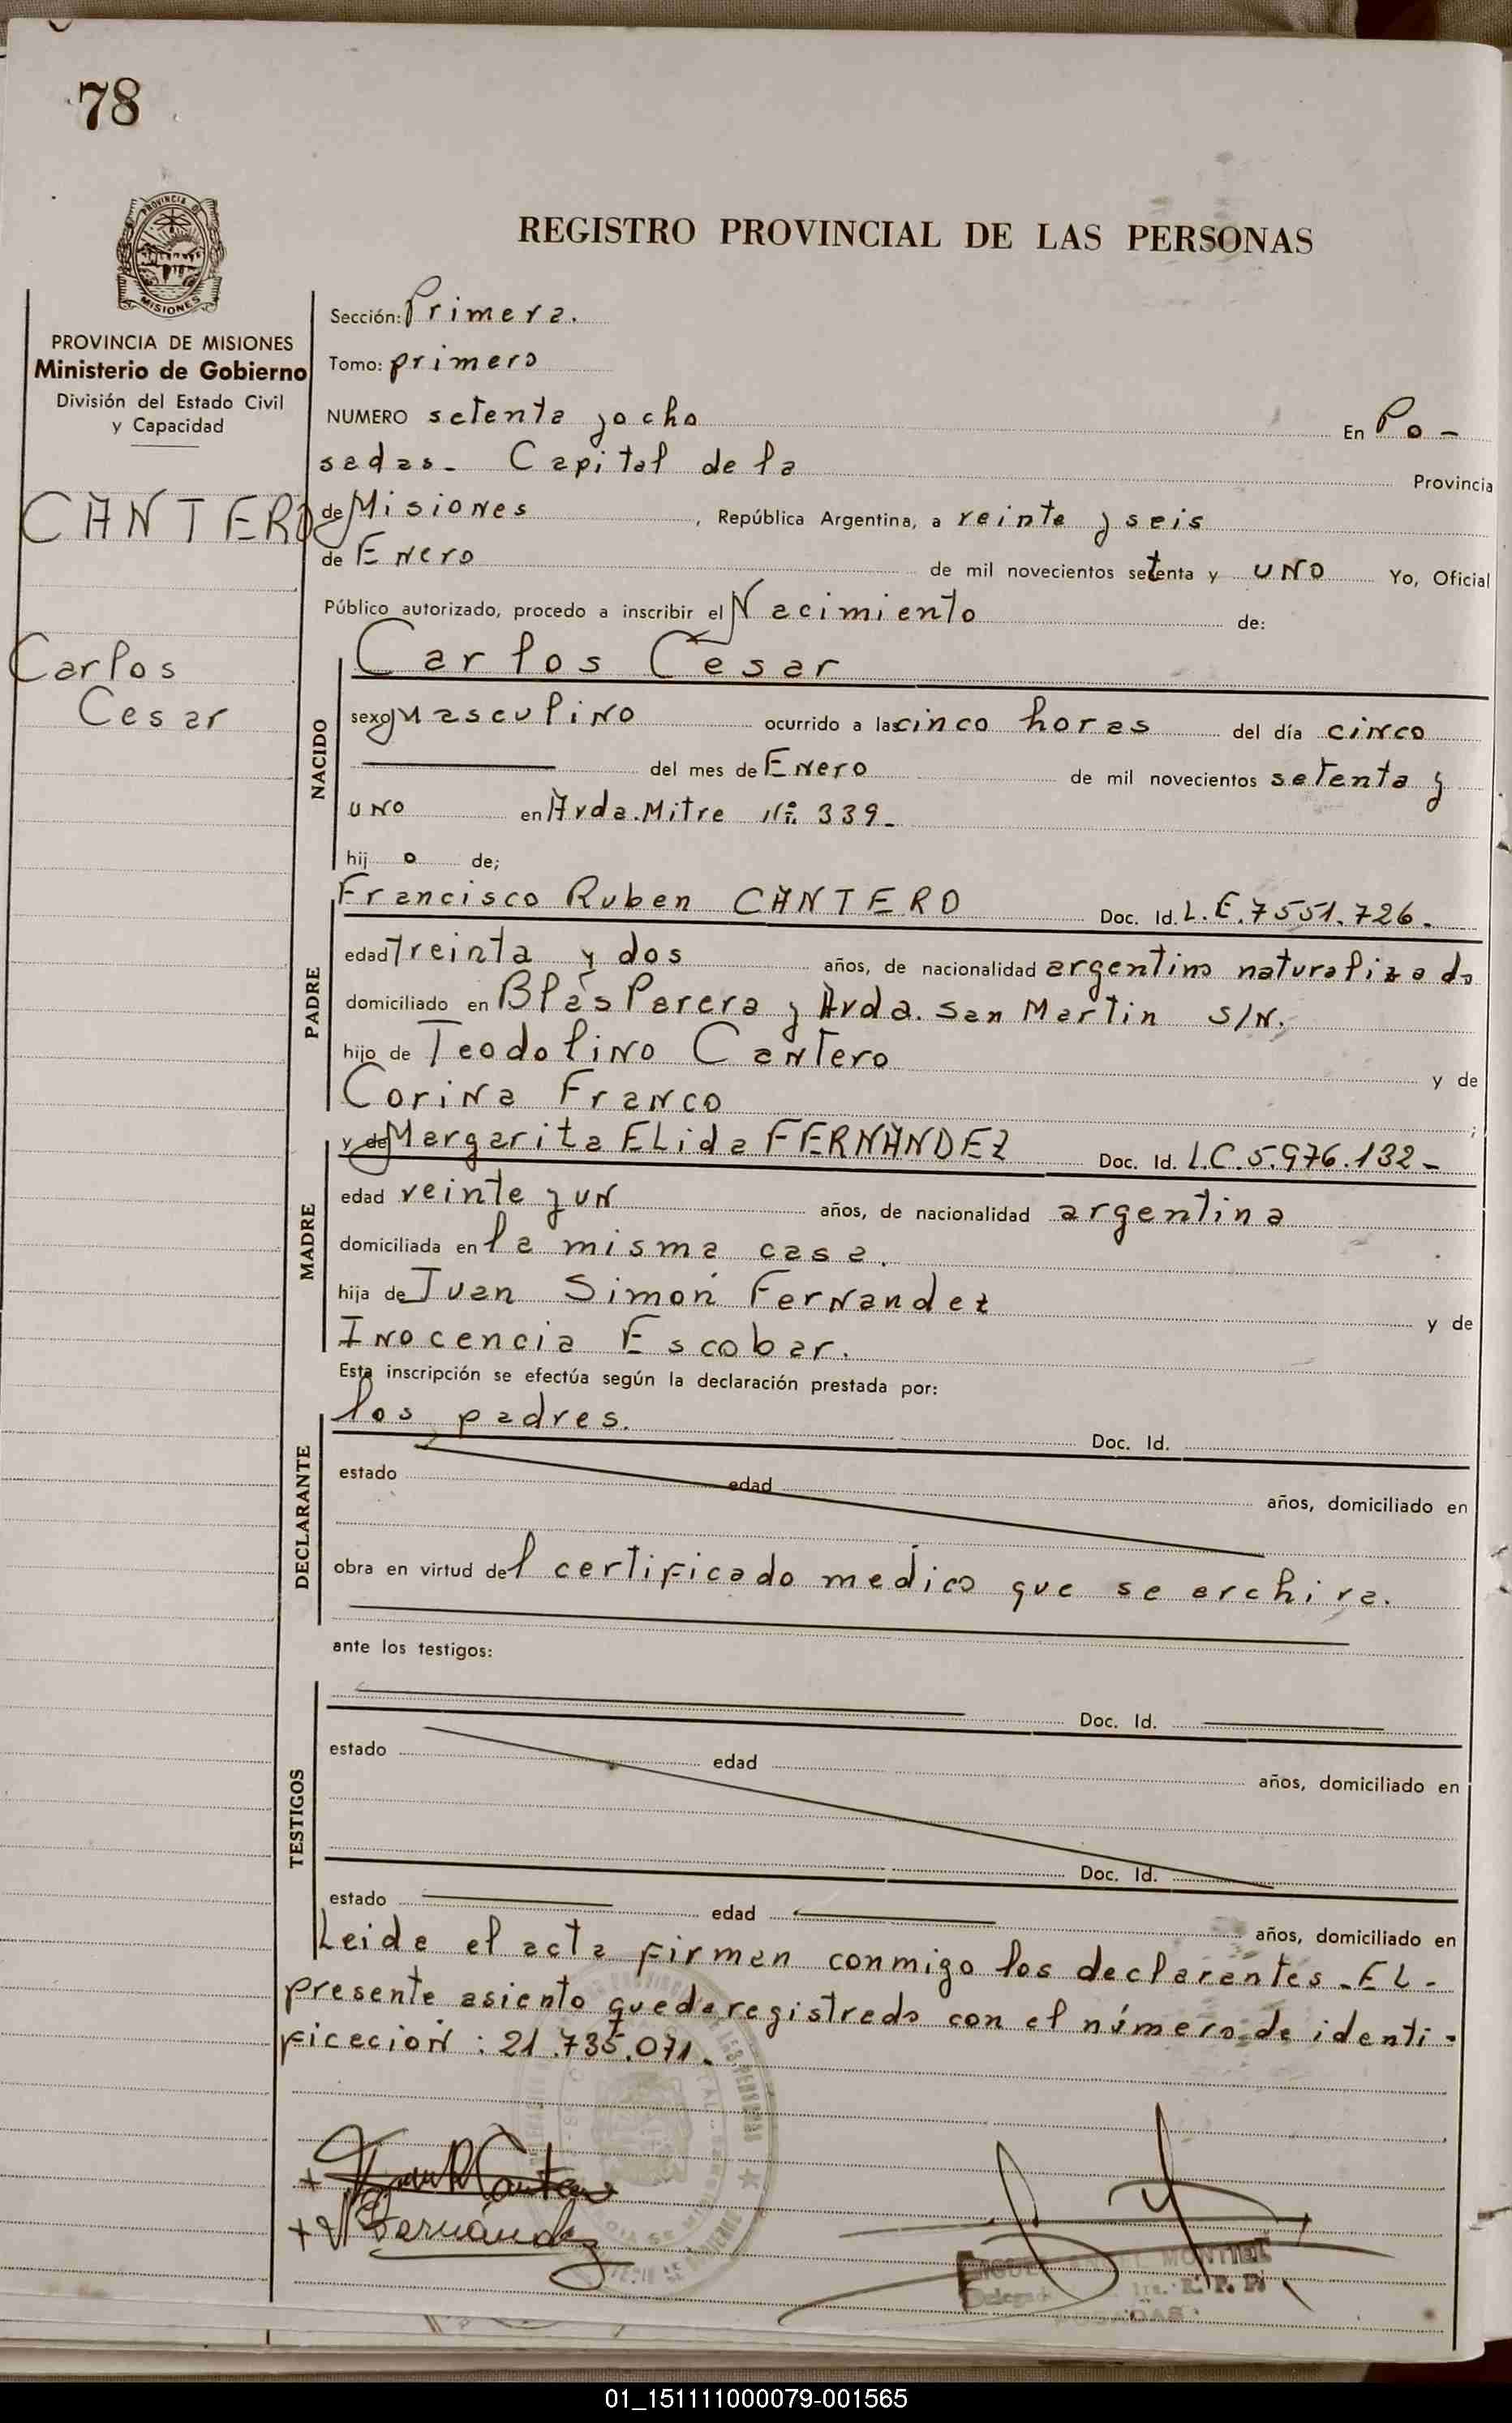 78
PROVINCIA DE
MISIONES
REGISTRO PROVINCIAL DE LAS PERSONAS
PROVINCIA DE MISIONES
Ministerio de Gobierno
División del Estado Civil
y Capacidad
CANTERO
Carlos
Cesar
Sección: Primera.
Tomo: primero
NUMERO setenta y ocho En Po-
sadas- Capital de la Provincia
de Misiones, República Argentina, a veinte y seis
de Enero de mil novecientos setenta y uno Yo, Oficial
Público autorizado, procedo a inscribir el Nacimiento de:
NACIDO
Carlos Cesar
sexo Masculino ocurrido a las cinco horas del día cinco
del mes de Enero de mil novecientos setenta y
uno en Avda. Mitre Nº 339-
hijo de;
PADRE
Francisco Ruben CANTERO Doc. Id. L.E. 7551.726-
edad treinta y dos años, de nacionalidad argentino naturalizado
domiciliado en Blás Parera y Avda. San Martin S/N.
hijo de Teodolino Cantero y de
Corina Franco;
MADRE
y de Margarita ELida FERNANDEZ Doc. Id. L.C. 5.976.132-
edad veinte y un años, de nacionalidad argentina
domiciliada en la misma casa.
hija de Juan Simón Fernandez y de
Inocencia Escobar.
Esta inscripción se efectúa según la declaración prestada por:
DECLARANTE
los padres. Doc. Id.
estado edad años, domiciliado en
obra en virtud del certificado medico que se archiva.
ante los testigos:
TESTIGOS
Doc. Id.
estado edad años, domiciliado en
Doc. Id.
estado edad años, domiciliado en
Leida el acta firman conmigo los declarantes-EL-
presente asiento queda registrado con el número de identi-
ficación: 21.735.071.
Cantero
Fernández
ANGEL MONTIEL
R. P. P.
01_151111000079-001565